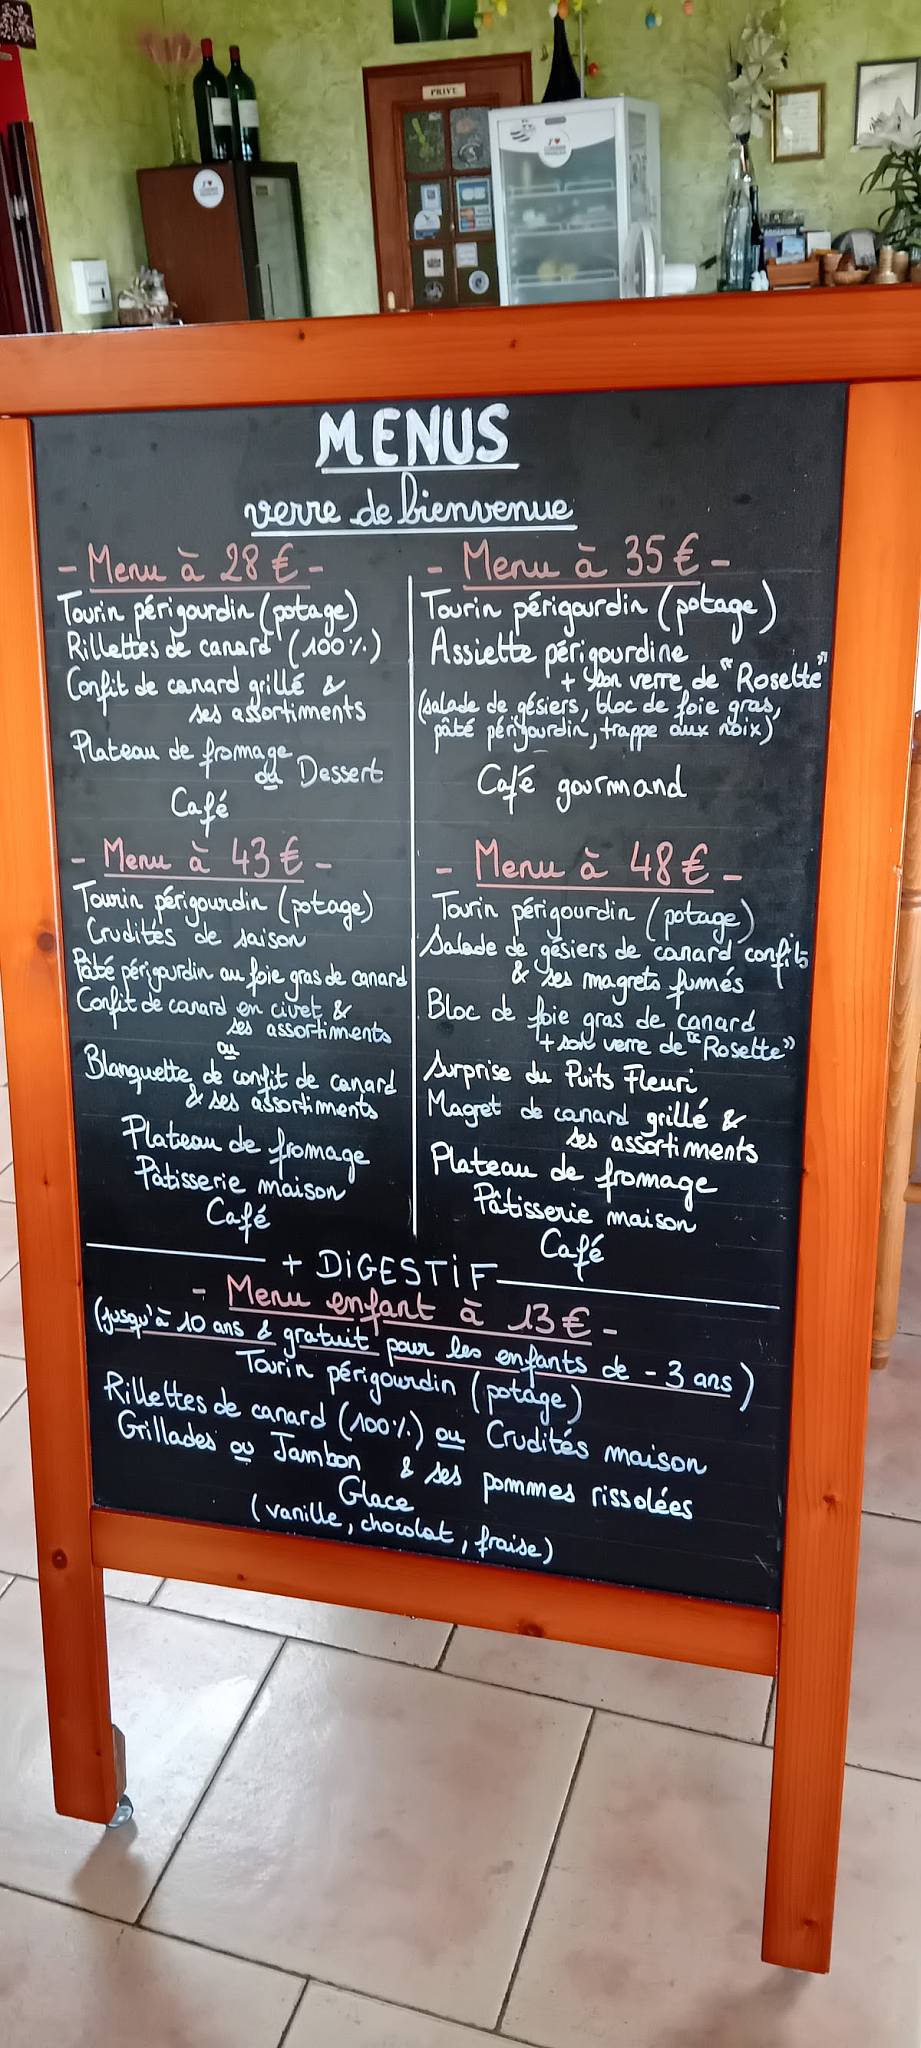 PRIVÉ
MENUS
verre de bienvenue
- Menu à 28 € -
Tourin périgourdin (potage)
Rillettes de canard (100%)
Confit de canard grillé &
ses assortiments
Plateau de fromage
ou Dessert
Café
- Menu à 35 € -
Tourin périgourdin (potage)
Assiette périgourdine
+ son verre de "Rosette"
(salade de gésiers, bloc de foie gras,
pâté périgourdin, trappe aux noix)
Café gourmand
- Menu à 43 € -
Tourin périgourdin (potage)
Crudités de saison
Pâté périgourdin au foie gras de canard
Confit de canard en civet &
ses assortiments
ou
Blanquette de confit de canard
& ses assortiments
Plateau de fromage
Pâtisserie maison
Café
- Menu à 48 € -
Tourin périgourdin (potage)
Salade de gésiers de canard confits
& ses magrets fumés
Bloc de foie gras de canard
+ son verre de "Rosette"
Surprise du Puits Fleuri
Magret de canard grillé &
ses assortiments
Plateau de fromage
Pâtisserie maison
Café
+ DiGESTiF
- Menu enfant à 13 € -
(jusqu'à 10 ans & gratuit pour les enfants de - 3 ans)
Tourin périgourdin (potage)
Rillettes de canard (100%) ou Crudités maison
Grillades ou Jambon & ses pommes rissolées
Glace
(vanille, chocolat, fraise)